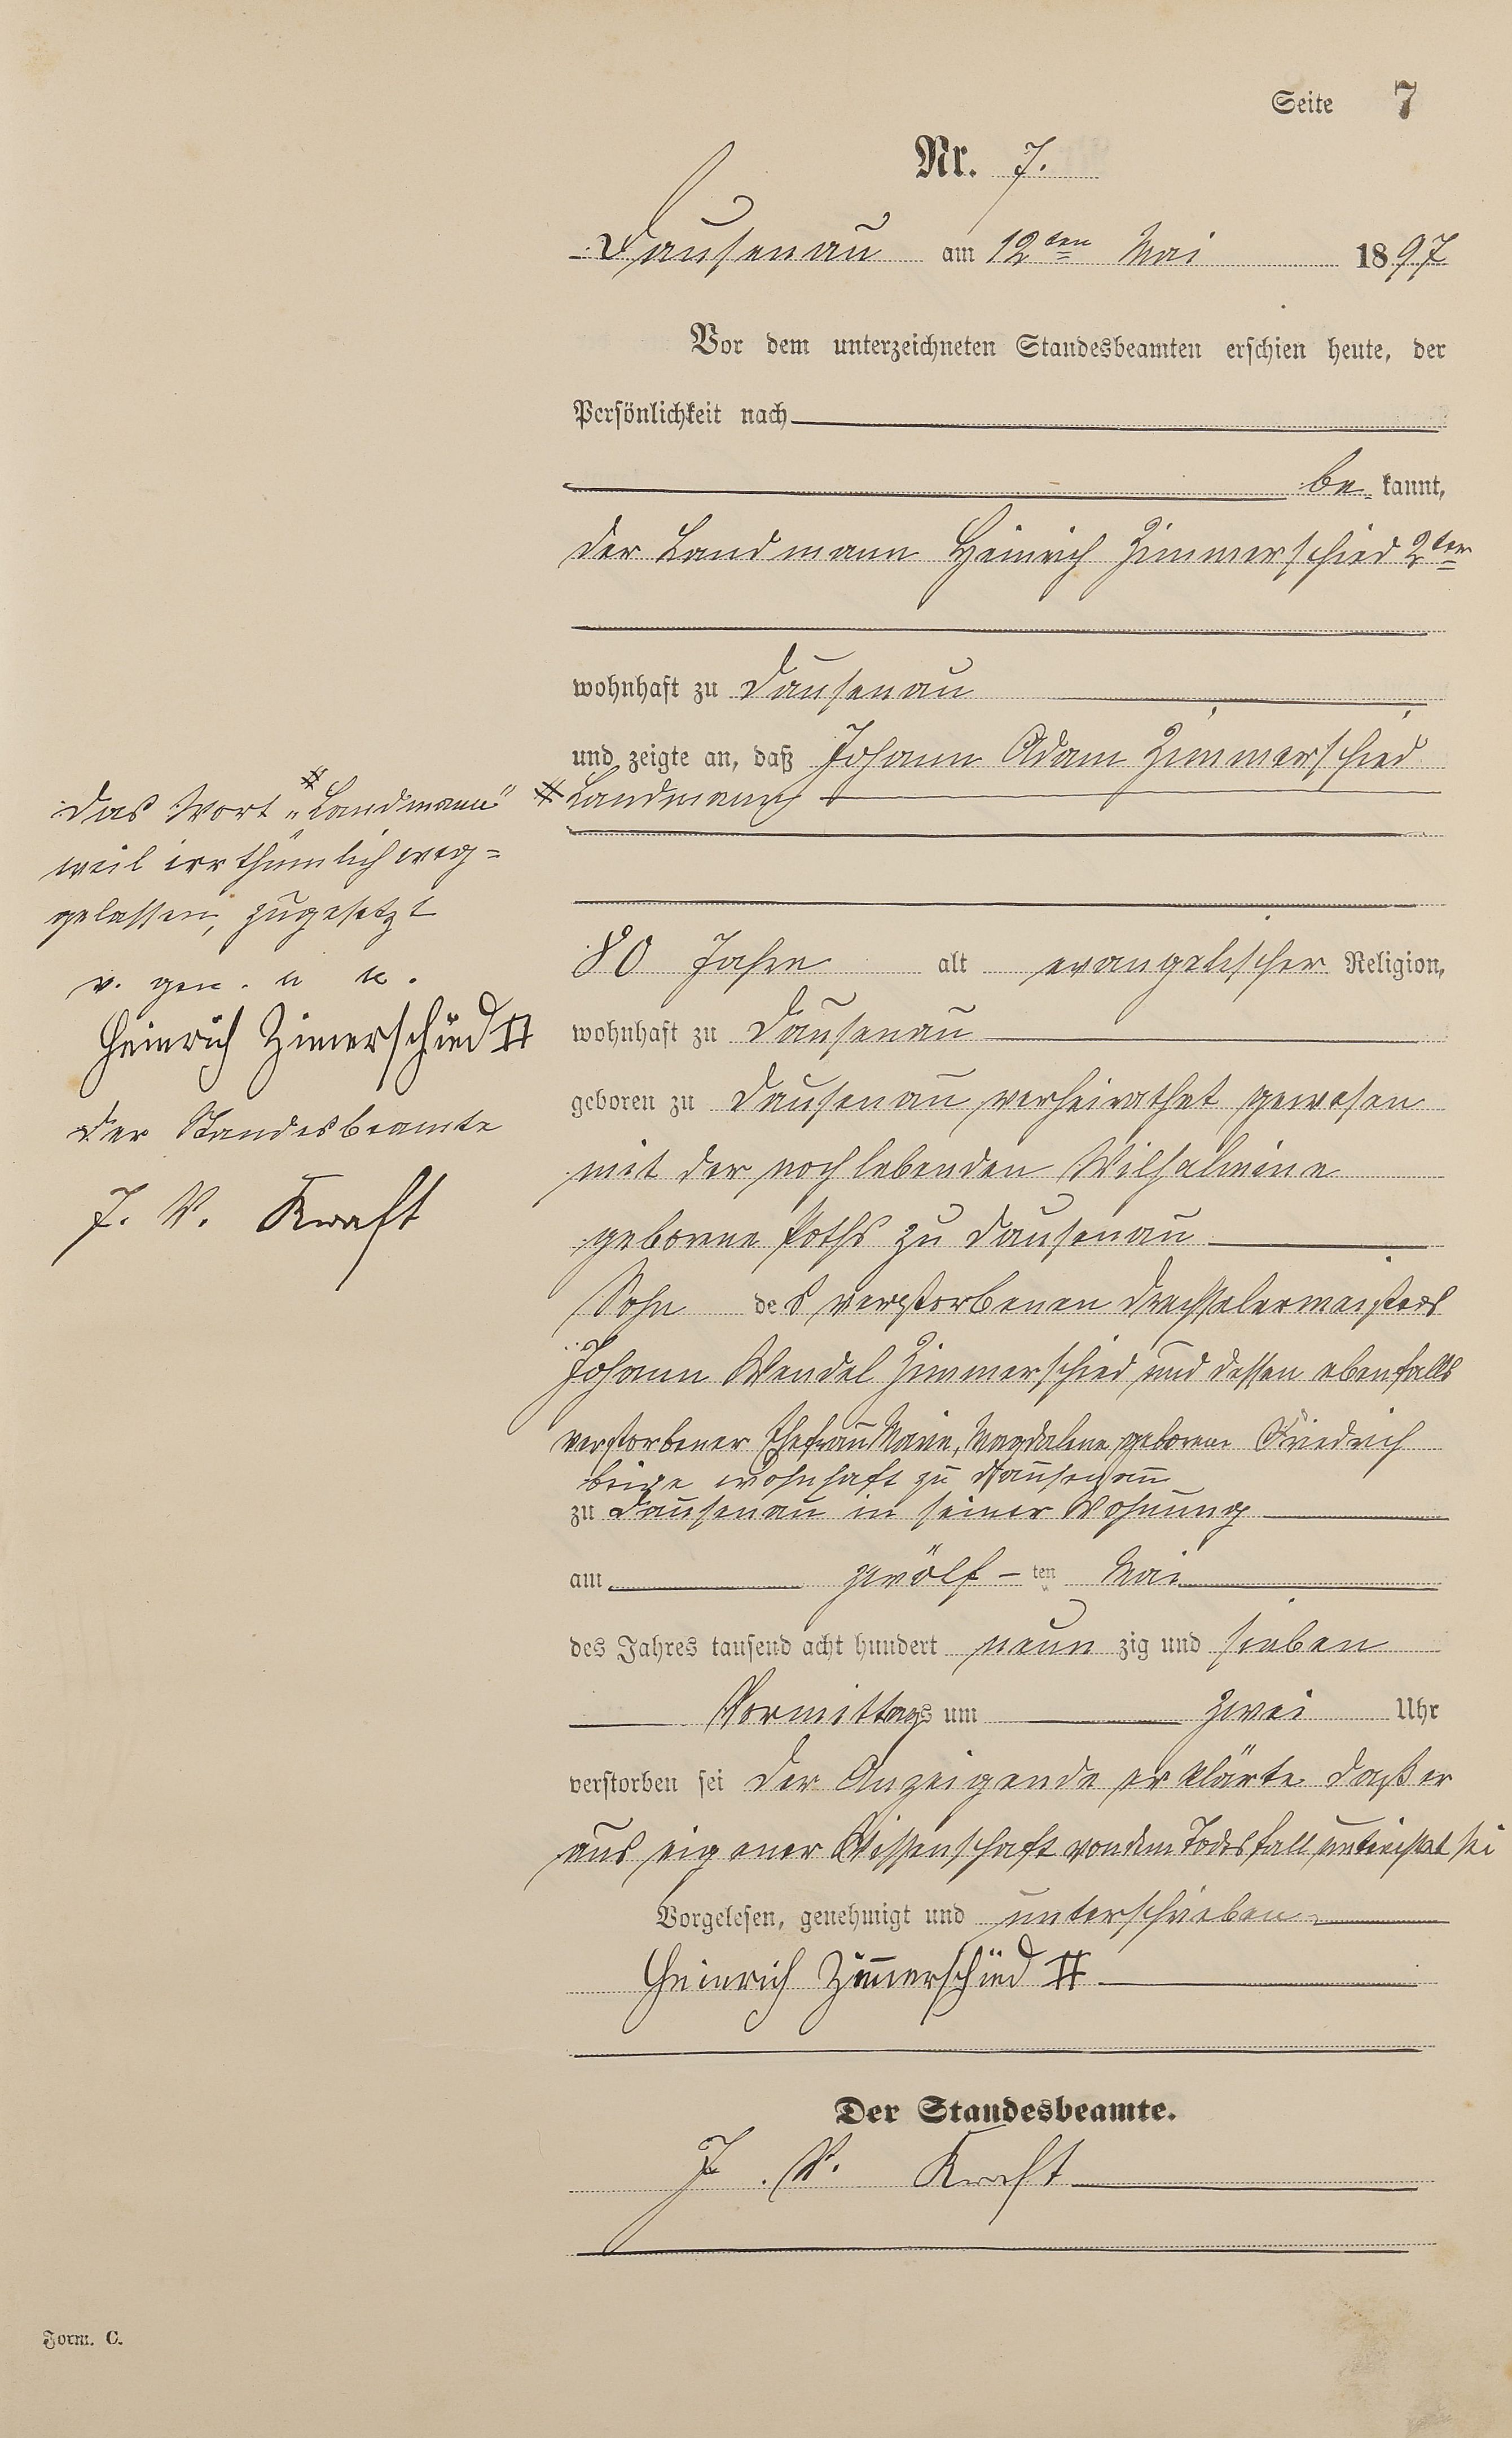 Seite 7
Nr. 7.
Dausenau am 12ten Mai 1897
Vor dem unterzeichneten Standesbeamten erschien heute, der
Persönlichkeit nach
be kannt,
der Landmann Heinrich Zimmerschied 2ter
wohnhaft zu Dausenau
und zeigte an, daß Johann Adam Zimmerschied
# Landmann
80 Jahre alt evangelischer Religion,
wohnhaft zu Dausenau
geboren zu Dausenau verheirathet gewesen
mit der noch lebenden Wilhelmine
geborene Poths zu Dausenau
Sohn des verstorbenen Drechslermeisters
Johann Wendel Zimmerschied und dessen ebenfalls
verstorbener Ehefrau Marie, Magdalene geborene Friedrich
beide wohnhaft zu Dausenau
zu Dausenau in seiner Wohnung
am zwölf-ten Mai
des Jahres tausend acht hundert neun zig und sieben
Vormittags um zwei Uhr
verstorben sei Der Anzeigende erklärte daß er
aus eigener Wissenschaft von dem Todesfall unterrichtet sei
Vorgelesen, genehmigt und unterschrieben
Heinrich Zim̅erschied II
Der Standesbeamte.
J. V. Kraft
das Wort # „Landmann"
weil irrthümlich weg=
gelassen, zugesetzt
v. gen. u u.
Heinrich Zimerschied II
Der Standesbeamte
J. V. Kraft
Form. C.